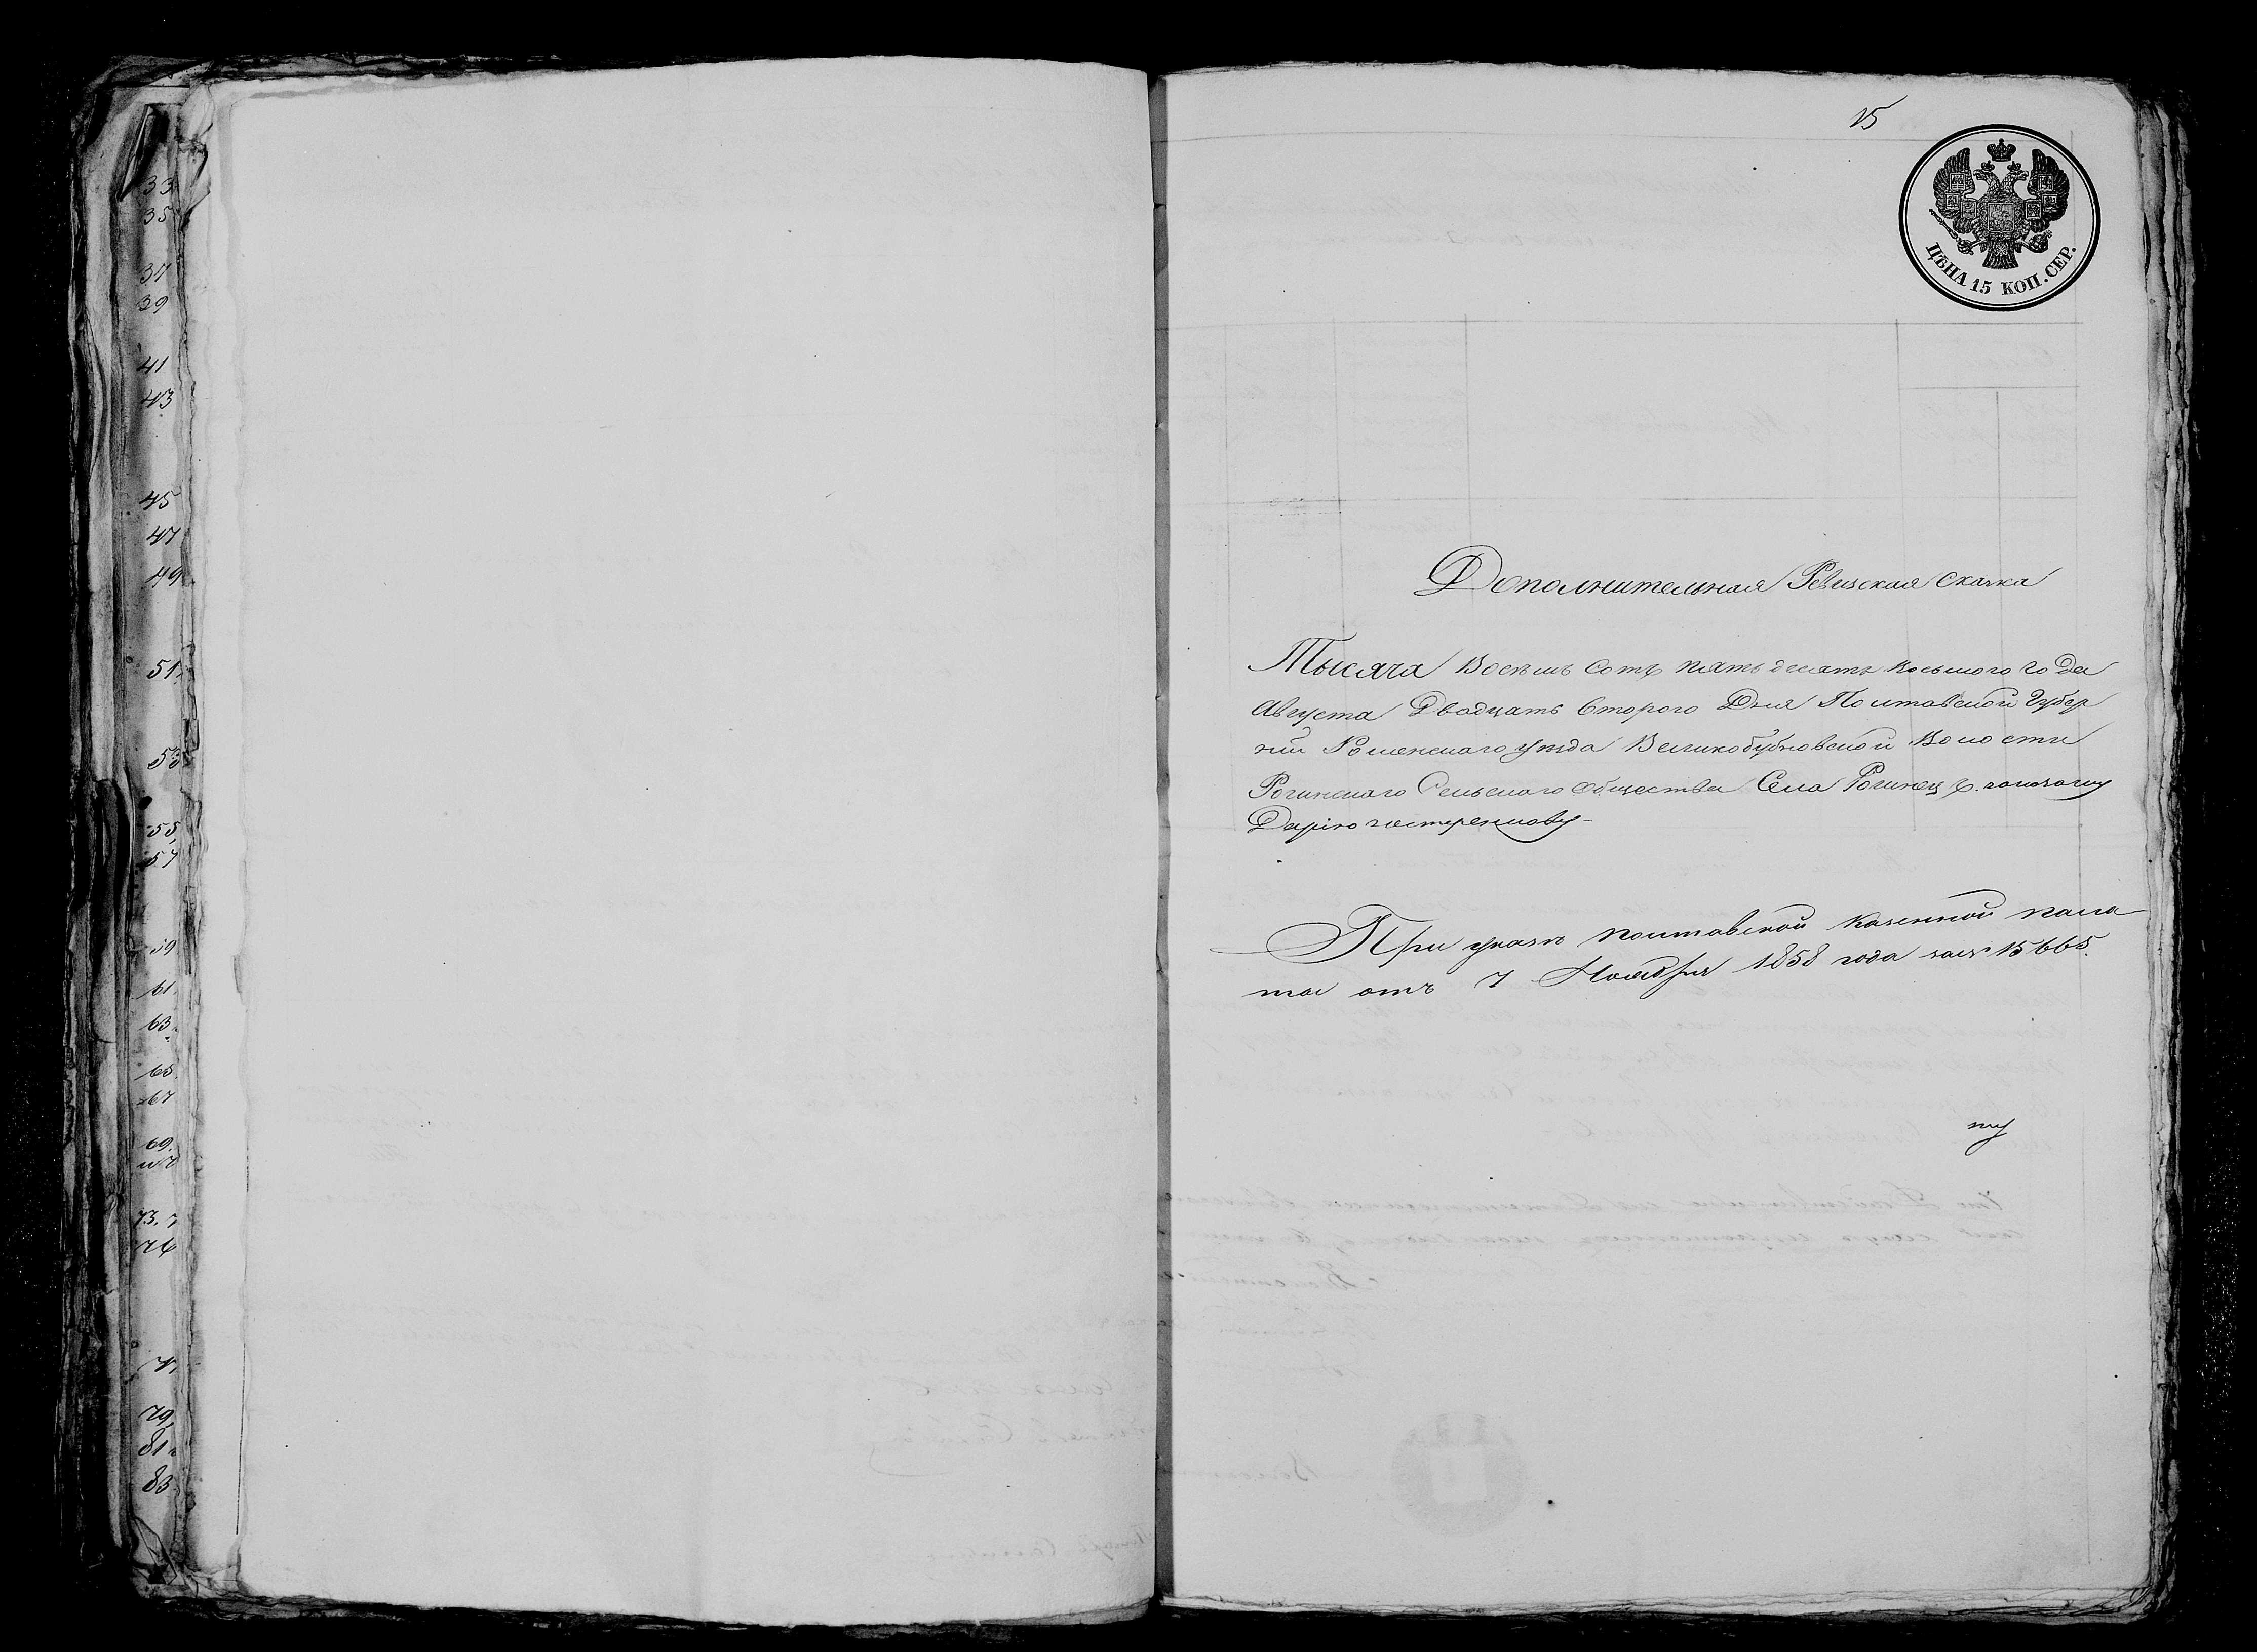 33
35
37
39
41
43
45
47
49
51
53
55
57
59
61
63
65
67
69
73.
79
81
83
15
ЦѢНА 15 КОП. СЕР.
Дополнительная Ревизская сказка
Тысяча Восемь сотъ пять десятъ восьмого года
Августа Двадцать второго Дня Полтавской Губер
нии Роменскаго уезда Великобубновской Волости
Рогинскаго Сельскаго общества Села Рогинец
Дарію
При указе полтавской казенной пала
ты отъ 7 Ноября 1858 года за № 15665.